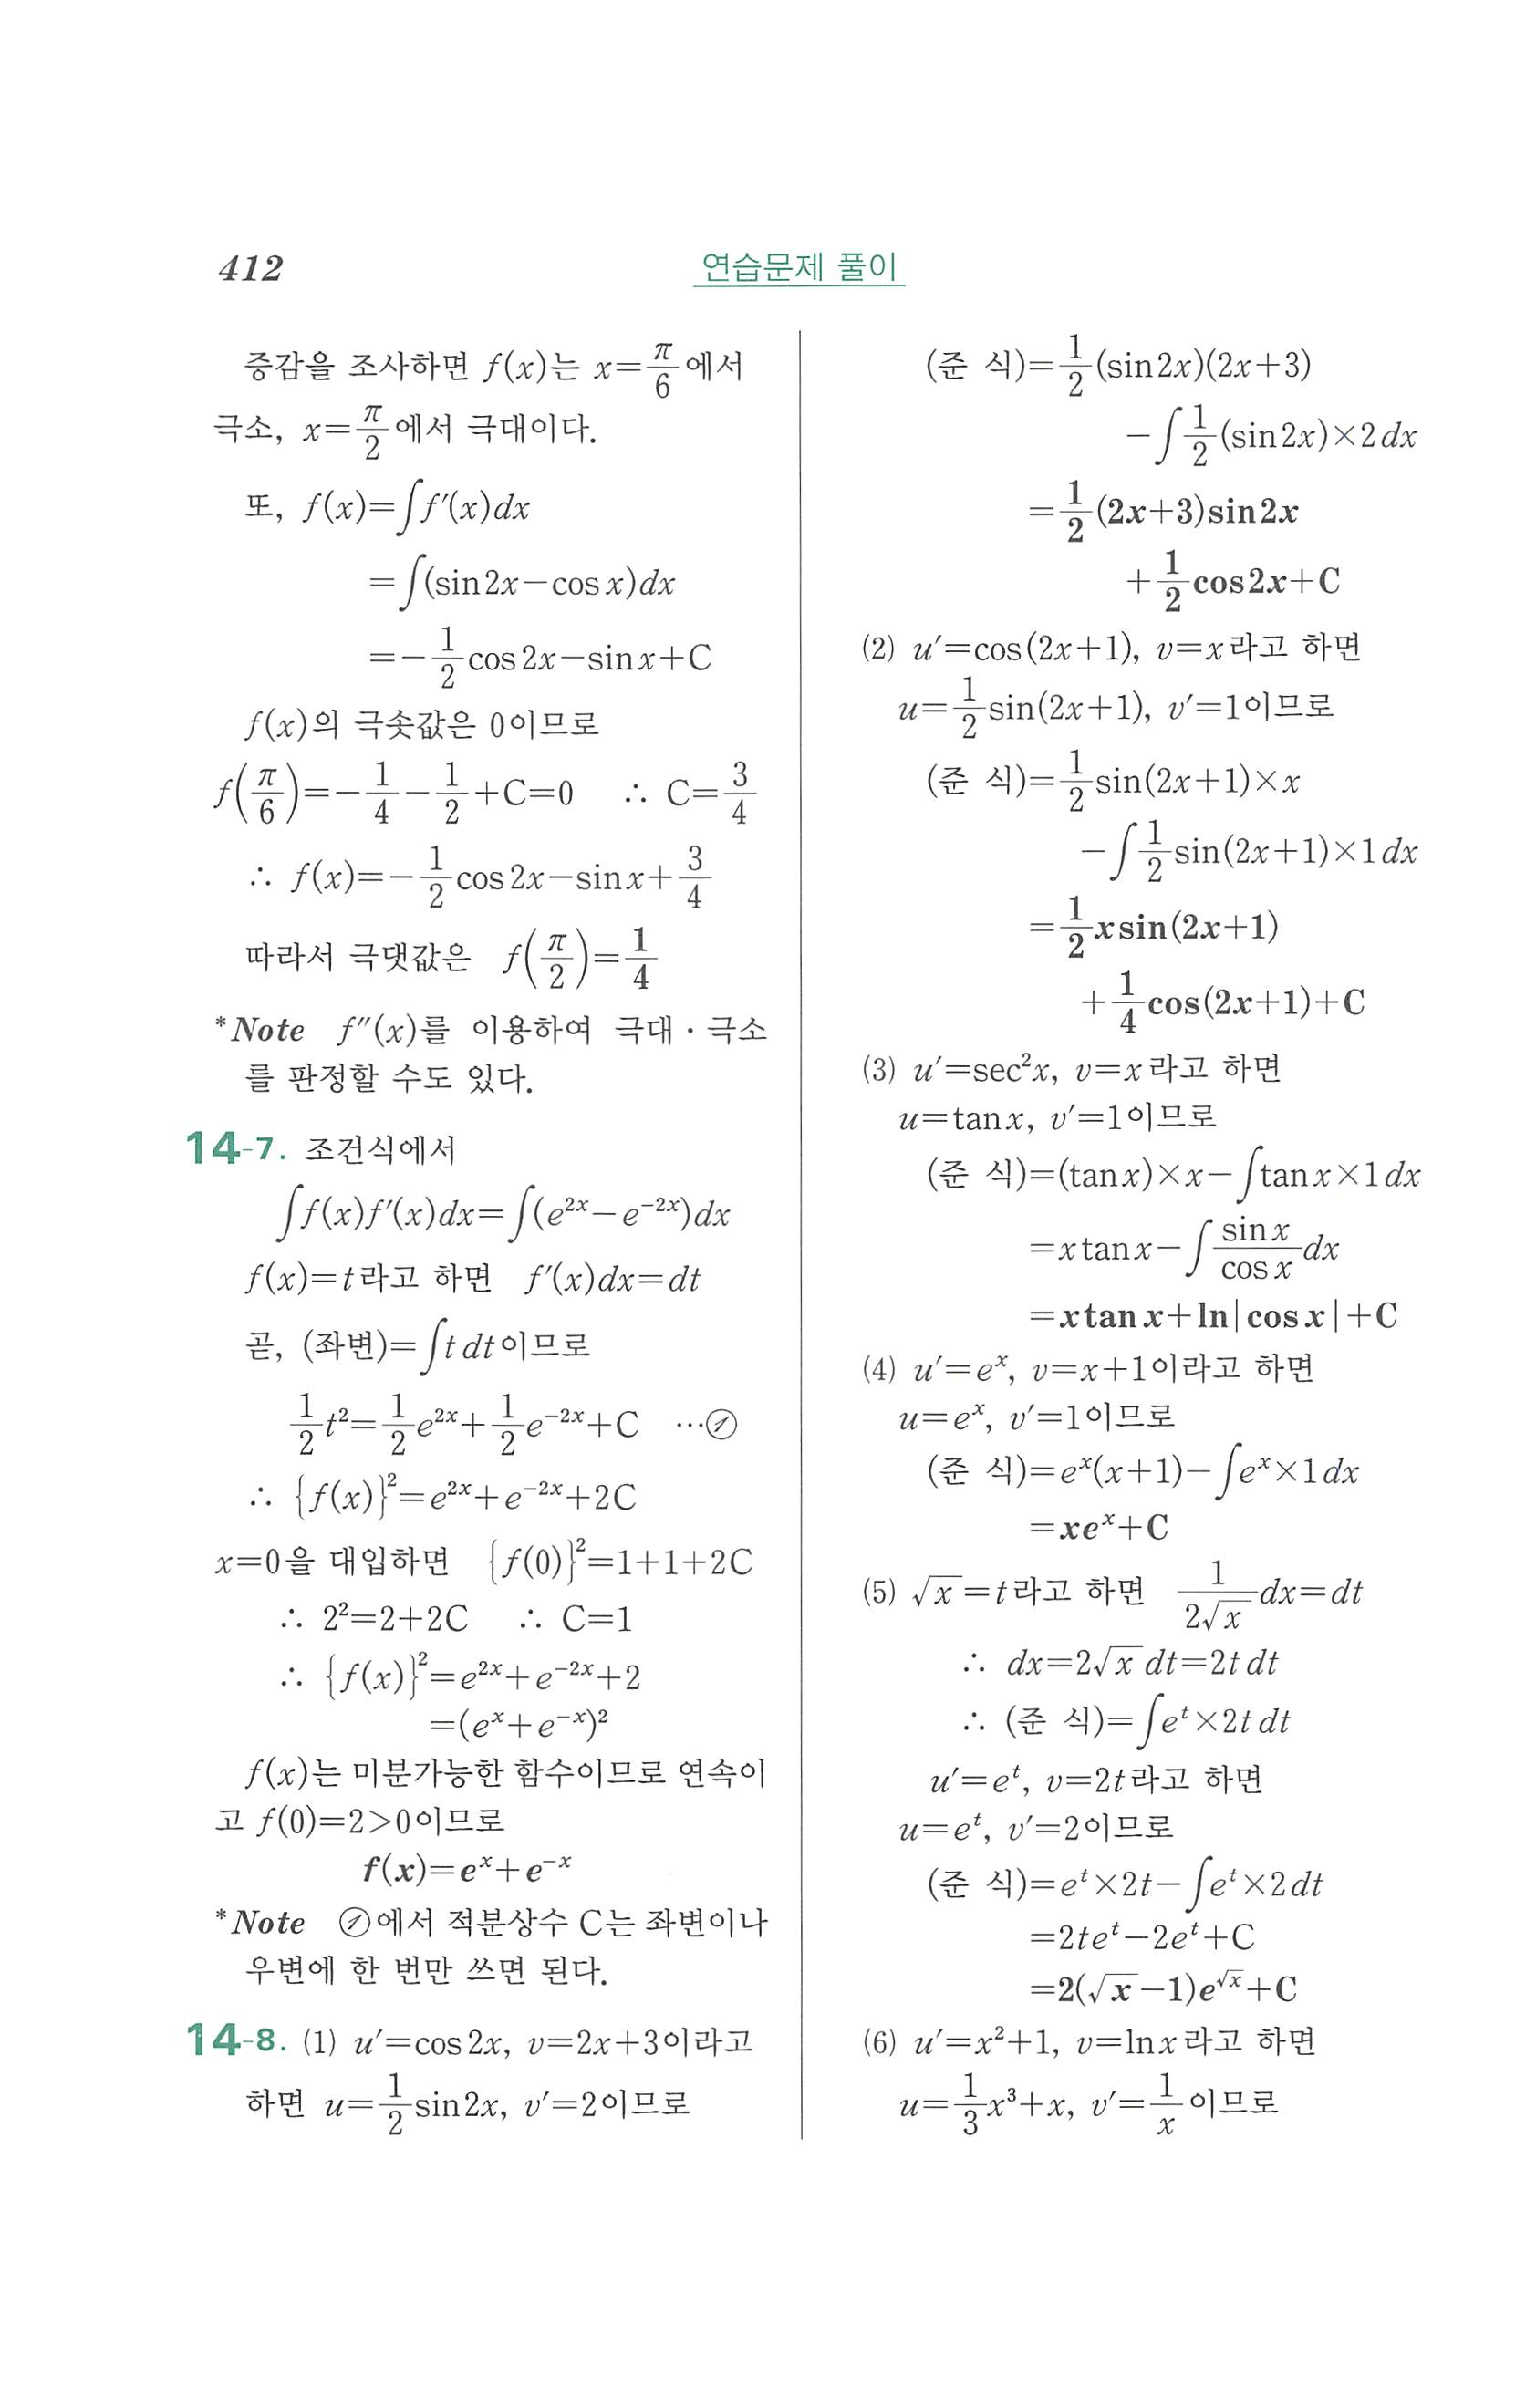 412
연습문제 풀이
증감을 조사하면 f(x)는 x=π/6에서
극소, x=π/2에서 극대이다.
또, f(x)=∫f′(x)dx
=∫(sin2x−cosx)dx
=−1/2cos2x−sinx+C
f(x)의 극솟값은 0이므로
f(π/6)=−1/4−1/2+C=0 ∴ C=3/4
∴ f(x)=−1/2cos2x−sinx+3/4
따라서 극댓값은 f(π/2)=1/4
*Note f″(x)를 이용하여 극대·극소
를 판정할 수도 있다.
14-7. 조건식에서
∫f(x)f′(x)dx=∫(e²ˣ−e⁻²ˣ)dx
f(x)=t라고 하면 f′(x)dx=dt
곧, (좌변)=∫t dt이므로
1/2t²=1/2e²ˣ+1/2e⁻²ˣ+C ···㉠
∴ {f(x)}²=e²ˣ+e⁻²ˣ+2C
x=0을 대입하면 {f(0)}²=1+1+2C
∴ 2²=2+2C ∴ C=1
∴ {f(x)}²=e²ˣ+e⁻²ˣ+2
=(eˣ+e⁻ˣ)²
f(x)는 미분가능한 함수이므로 연속이
고 f(0)=2>0이므로
f(x)=eˣ+e⁻ˣ
*Note ㉠에서 적분상수 C는 좌변이나
우변에 한 번만 쓰면 된다.
14-8. (1) u′=cos2x, v=2x+3이라고
하면 u=1/2sin2x, v′=2이므로
(준 식)=1/2(sin2x)(2x+3)
−∫1/2(sin2x)×2dx
=1/2(2x+3)sin2x
+1/2cos2x+C
(2) u′=cos(2x+1), v=x라고 하면
u=1/2sin(2x+1), v′=1이므로
(준 식)=1/2sin(2x+1)×x
−∫1/2sin(2x+1)×1dx
=1/2xsin(2x+1)
+1/4cos(2x+1)+C
(3) u′=sec²x, v=x라고 하면
u=tanx, v′=1이므로
(준 식)=(tanx)×x−∫tanx×1dx
=xtanx−∫sinx/cosx dx
=xtanx+ln|cosx|+C
(4) u′=eˣ, v=x+1이라고 하면
u=eˣ, v′=1이므로
(준 식)=eˣ(x+1)−∫eˣ×1dx
=xeˣ+C
(5) √x=t라고 하면 1/(2√x)dx=dt
∴ dx=2√x dt=2t dt
∴ (준 식)=∫eᵗ×2t dt
u′=eᵗ, v=2t라고 하면
u=eᵗ, v′=2이므로
(준 식)=eᵗ×2t−∫eᵗ×2dt
=2teᵗ−2eᵗ+C
=2(√x−1)e^√x+C
(6) u′=x²+1, v=lnx라고 하면
u=1/3x³+x, v′=1/x이므로